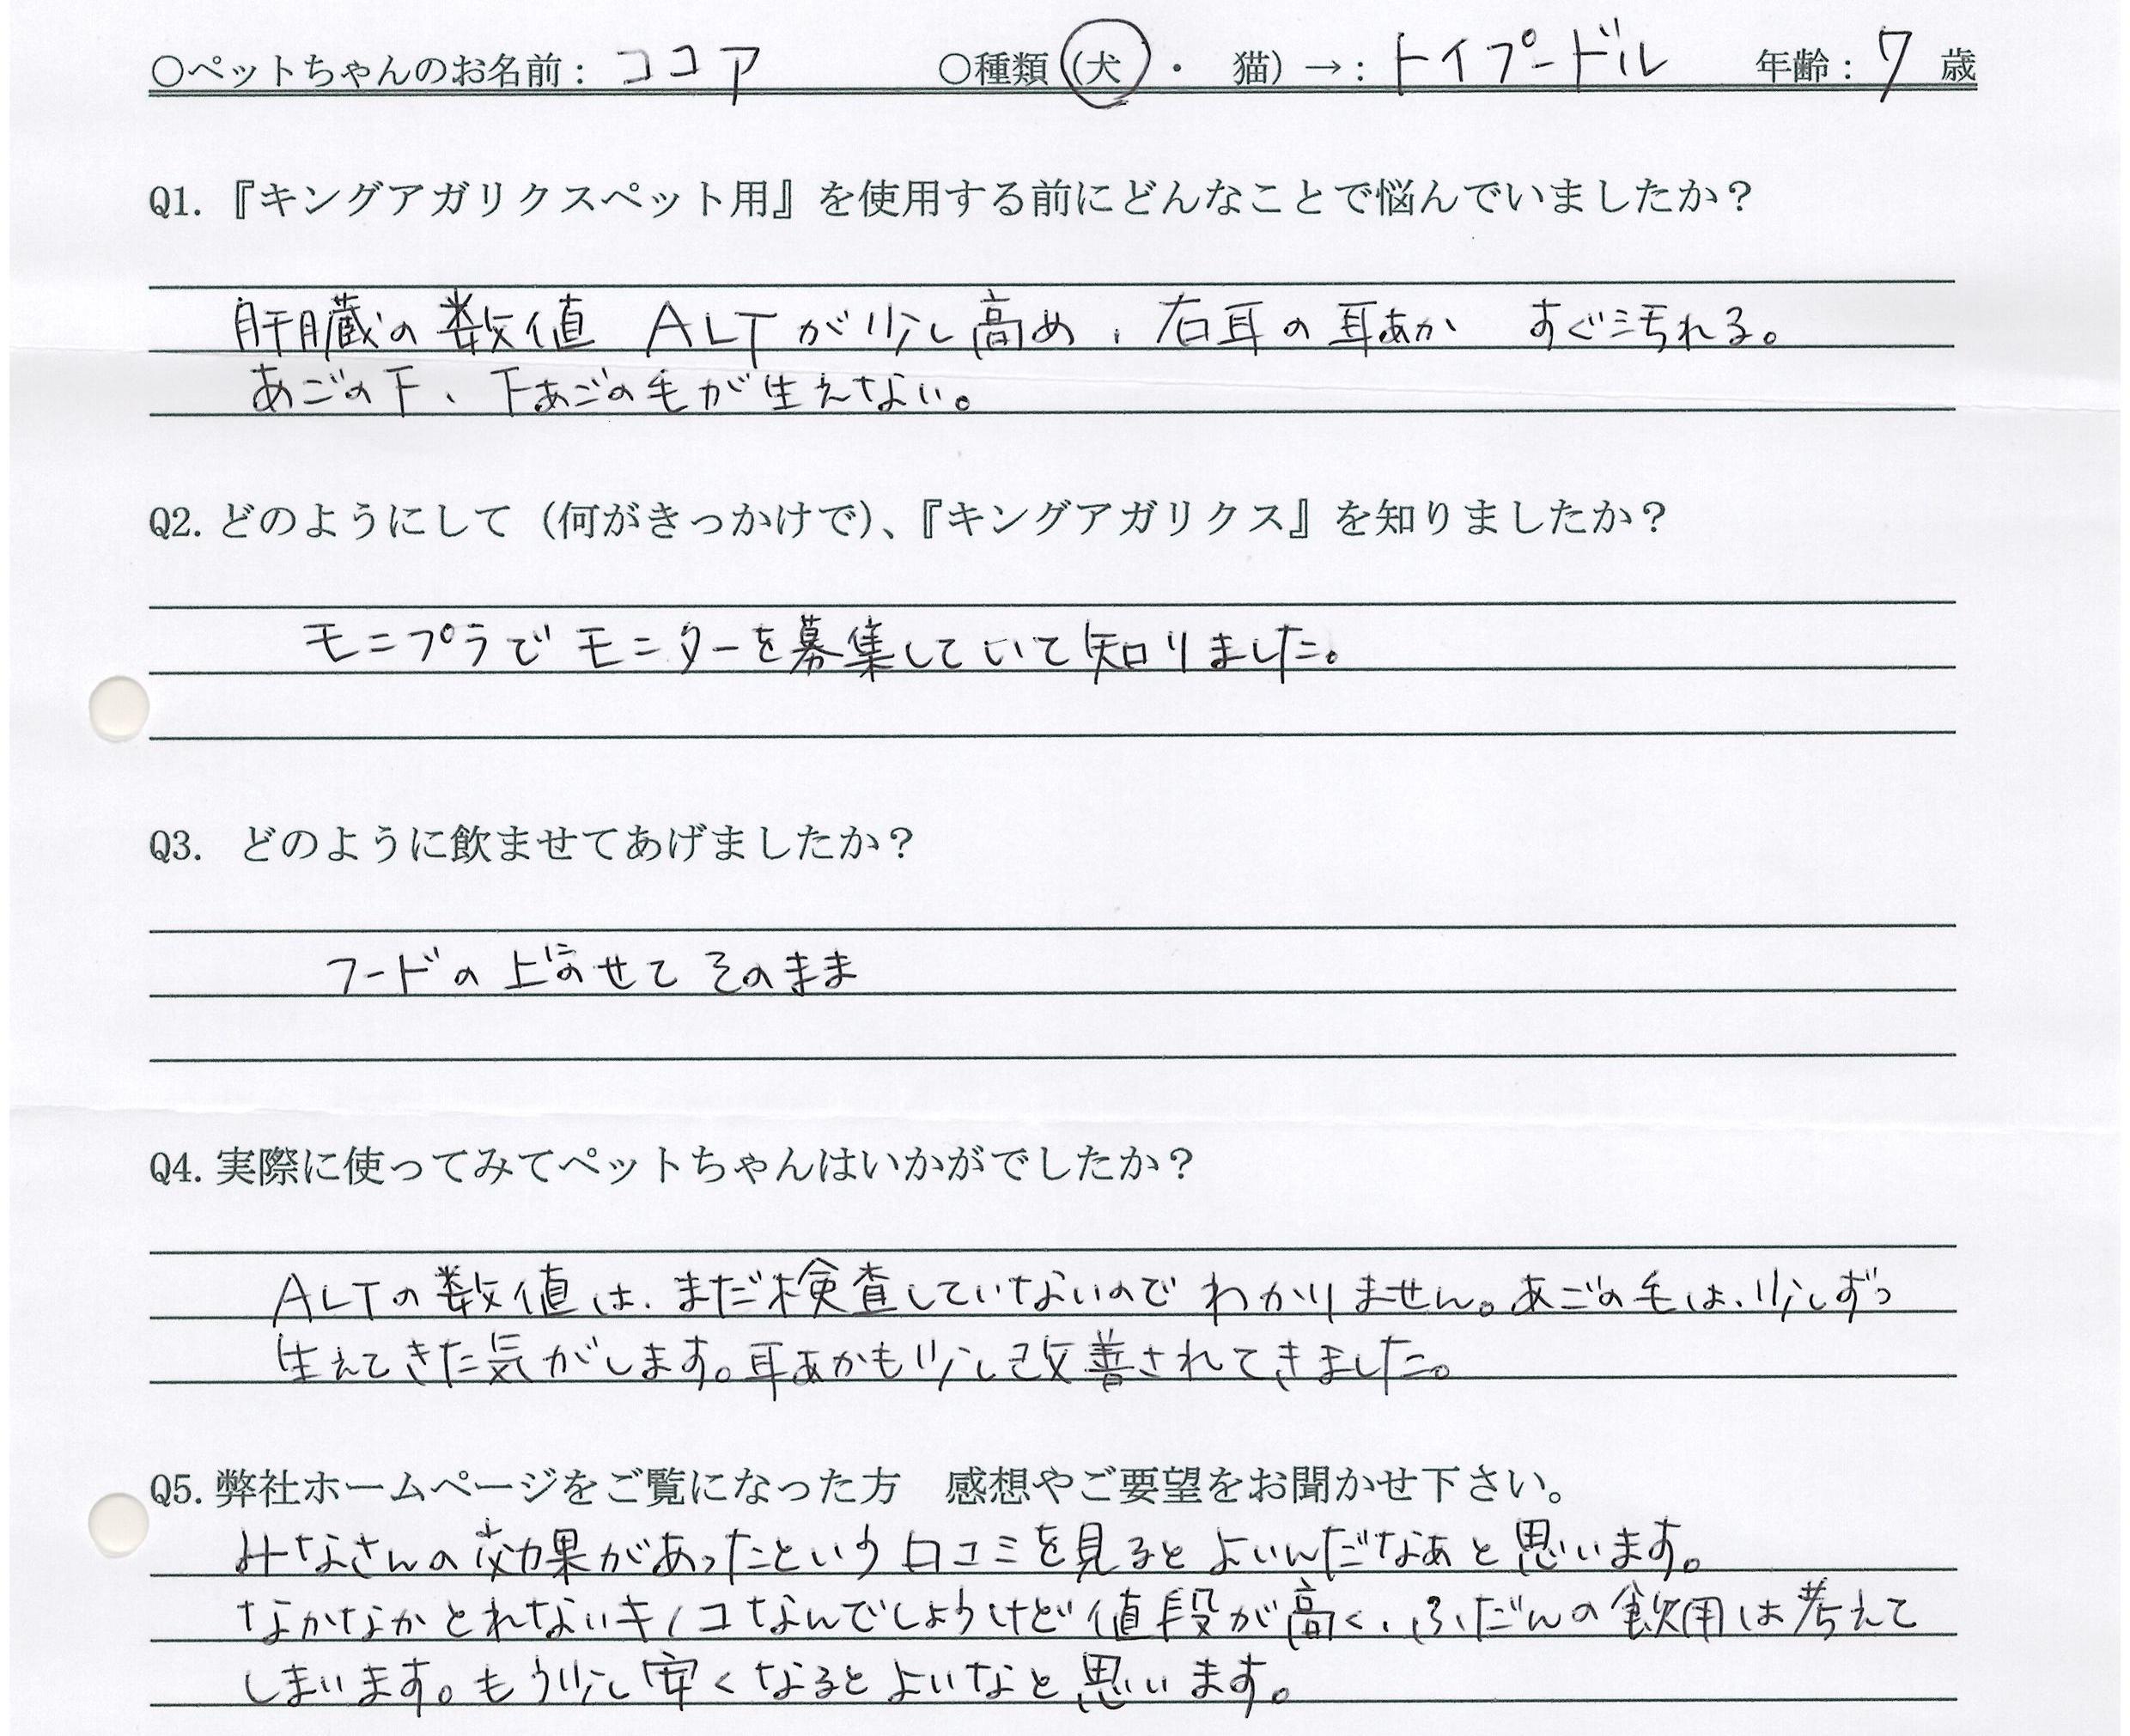 ○ペットちゃんのお名前：ココア　○種類（犬・　猫）→：トイプードル　年齢：7　歳
Q1.『キングアガリクスペット用』を使用する前にどんなことで悩んでいましたか？
肝臓の数値 ALTが少し高め、右耳の耳あか　すぐ汚れる。
あごの下、下あごの毛が生えない。
Q2.どのようにして（何がきっかけで）、『キングアガリクス』を知りましたか？
モニプラでモニターを募集していて知りました。
Q3.　どのように飲ませてあげましたか？
フードの上にのせて そのまま
Q4.実際に使ってみてペットちゃんはいかがでしたか？
ALTの数値は、まだ検査していないのでわかりません。あごの毛は、少しずつ
生えてきた気がします。耳あかも少し改善されてきました。
Q5.弊社ホームページをご覧になった方　感想やご要望をお聞かせ下さい。
みなさんの効果があったという口コミを見るとよいんだなあと思います。
なかなかとれないキノコなんでしょうけど値段が高く、ふだんの飲用は考えて
しまいます。もう少し安くなるとよいなと思います。